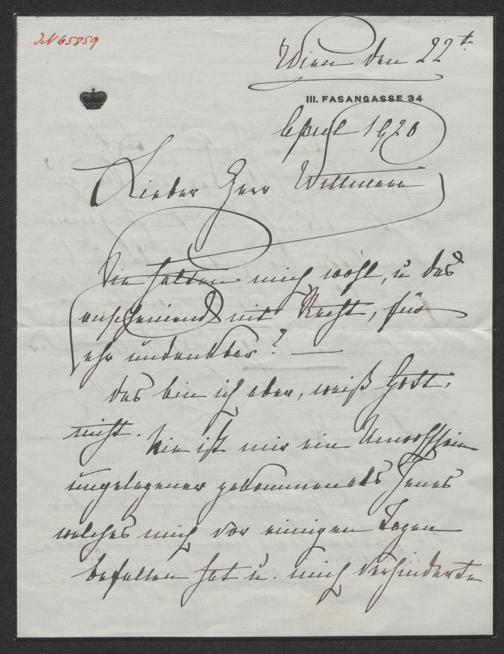 JN 65859
Wien den 22t
III. FASANGASSE 34
April 1920
Lieber Herr Willmann
Sie halten mich wohl, u das
anscheinend mit Recht, für
sehr undankbar? —
Das bin ich aber, weiß Gott,
nicht. Nie ist mir ein Unwohlsein
ungelegener gekommen als Jenes
welches mich vor einigen Tagen
befallen hat u. mich verhinderte